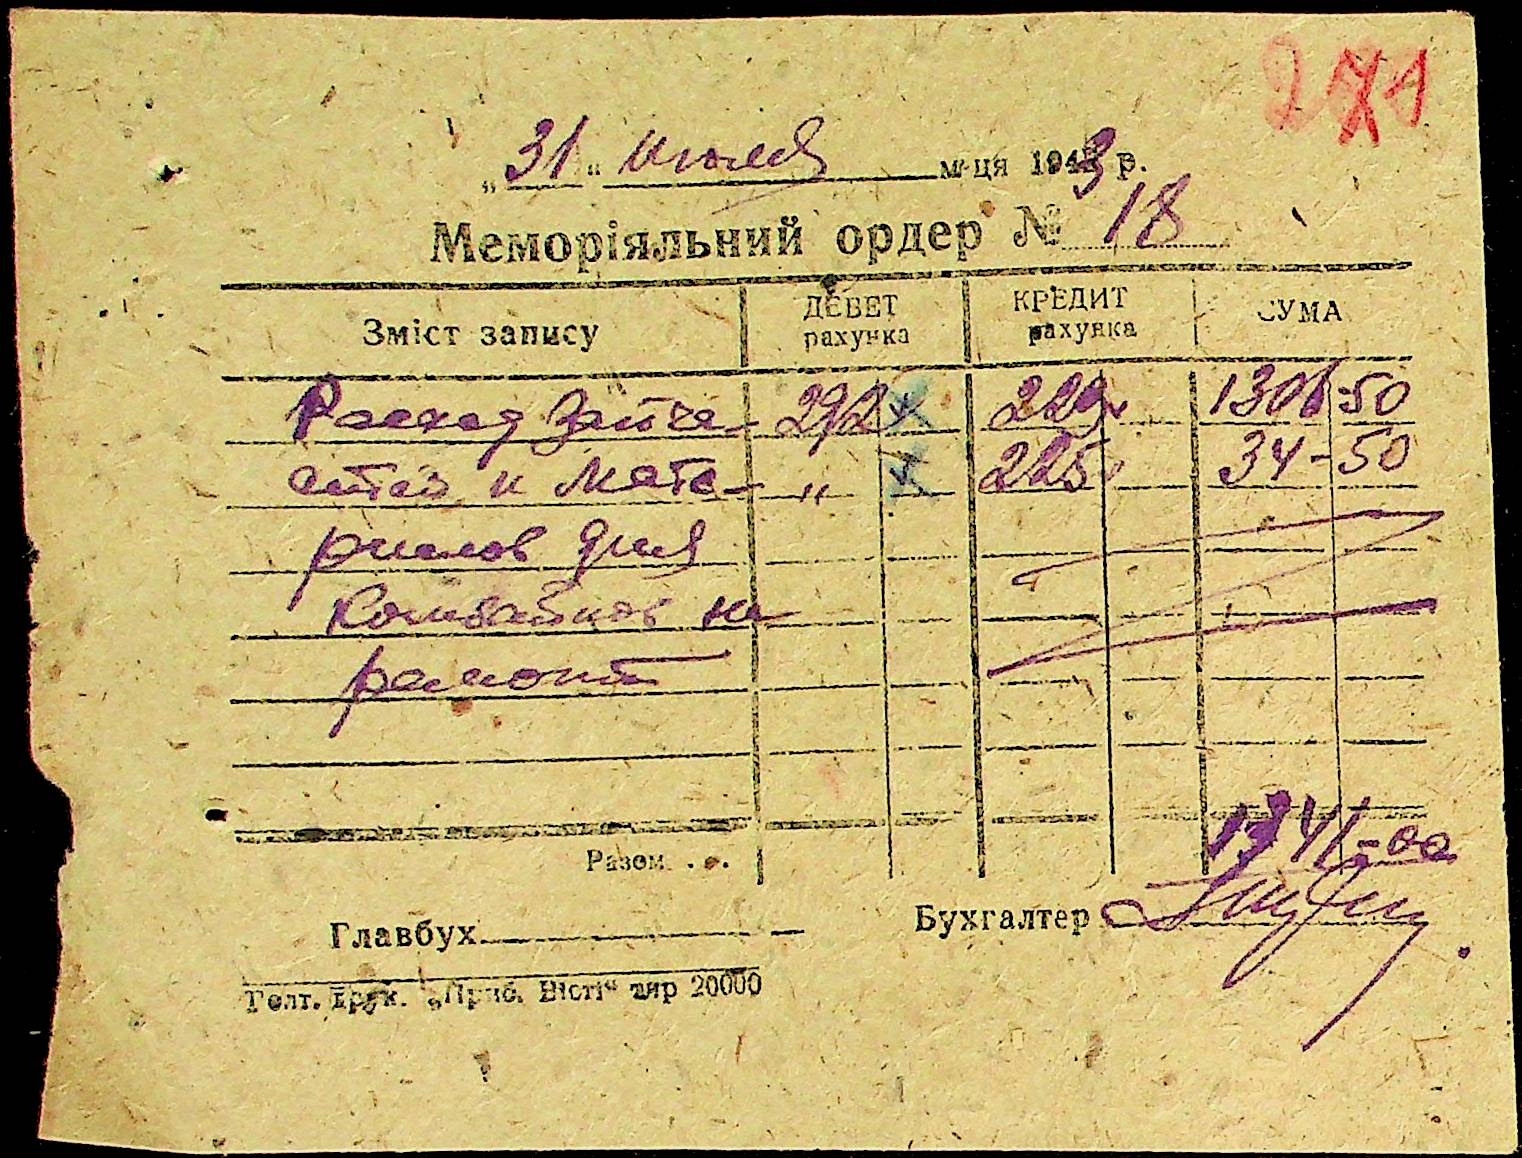 271
„31“ июля м-ця 1943 р.
Меморіяльний ордер № 18
Зміст запису ДЕБЕТ рахунка КРЕДИТ рахунка СУМА
Расход Запча- 292 229 1306-50
стей и Мате- " 225 34-50
риалов для
Комбайнов на
ремонт
1341-00
Разом . . .
Главбух Бухгалтер
Голт. друк. „Приб. Вісті“ тир 20000